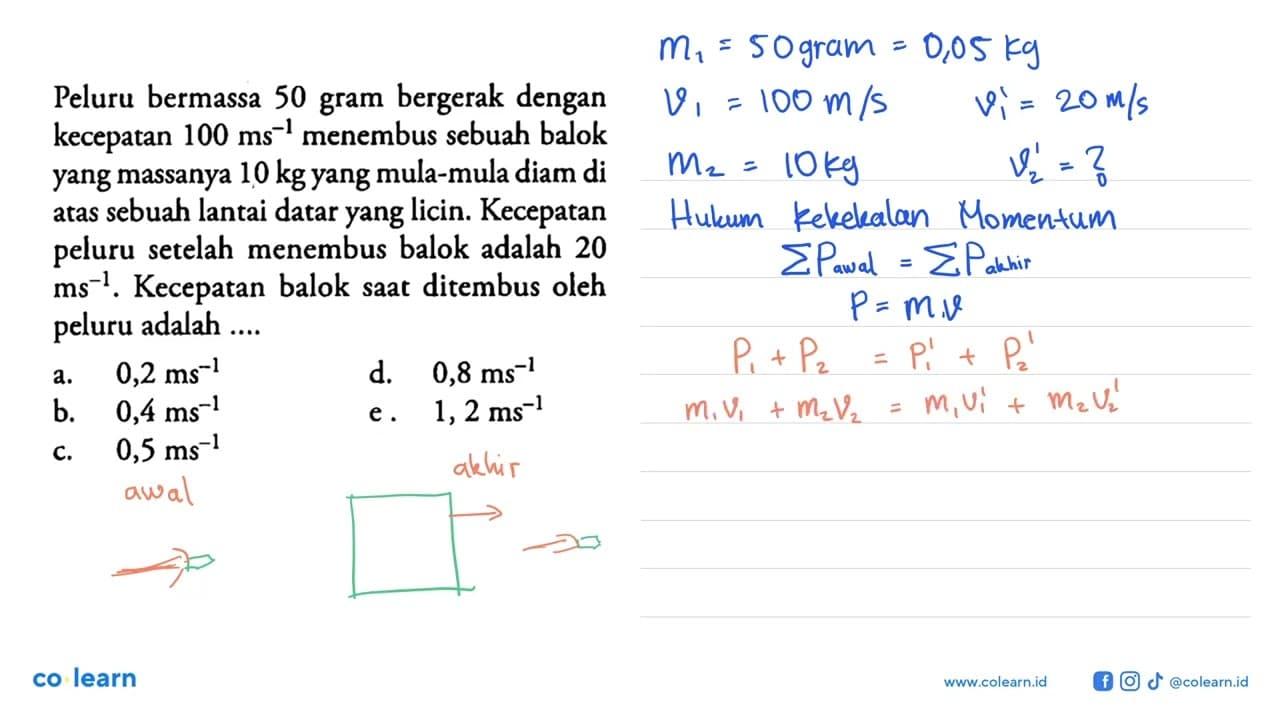 Peluru bermassa 50 gram bergerak dengan
kecepatan 100 ms⁻¹ menembus sebuah balok
yang massanya 10 kg yang mula-mula diam di
atas sebuah lantai datar yang licin. Kecepatan
peluru setelah menembus balok adalah 20
ms⁻¹. Kecepatan balok saat ditembus oleh
peluru adalah ....
a. 0,2 ms⁻¹ d. 0,8 ms⁻¹
b. 0,4 ms⁻¹ e. 1, 2 ms⁻¹
c. 0,5 ms⁻¹
awal
akhir
m₁ = 50 gram = 0,05 kg
v₁ = 100 m/s v₁' = 20 m/s
m₂ = 10 kg v₂' = ?
Hukum Kekekalan Momentum
ΣPawal = ΣPakhir
P = m.v
P₁ + P₂ = P₁' + P₂'
m₁v₁ + m₂v₂ = m₁v₁' + m₂v₂'
co learn
www.colearn.id
@colearn.id